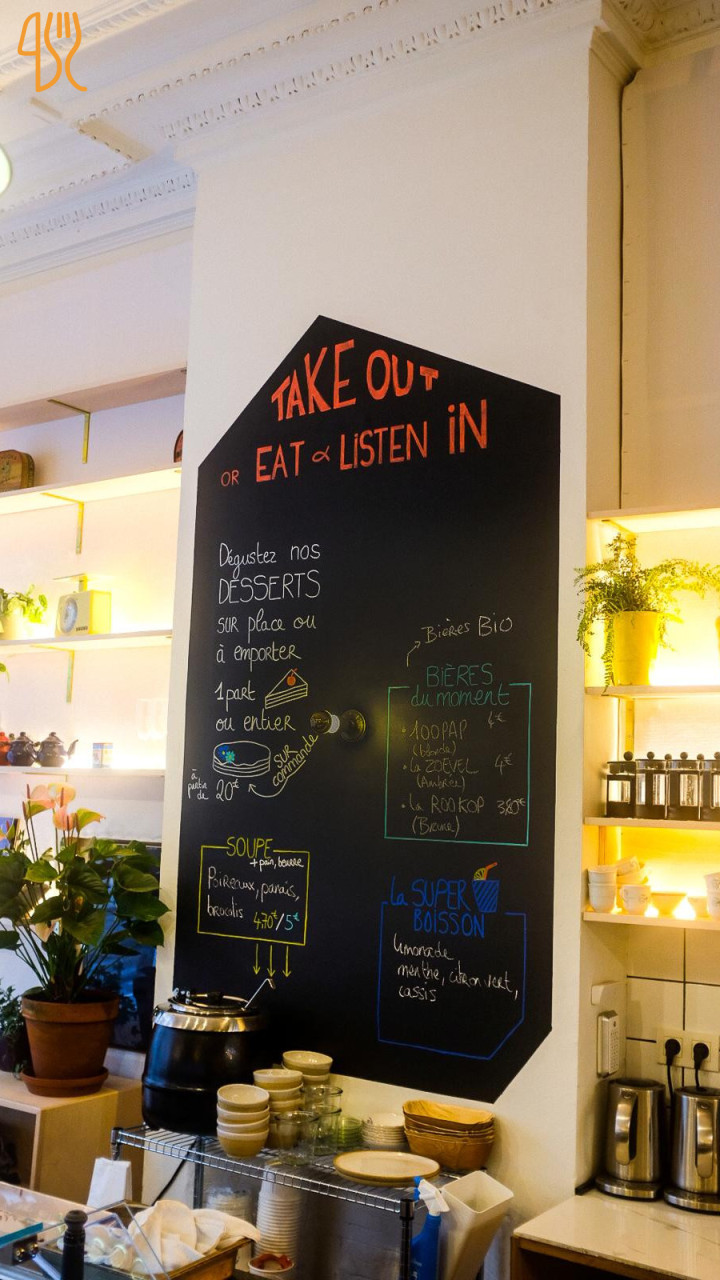 TAKE OUT
OR EAT & LISTEN IN
Dégustez nos
DESSERTS
sur place ou
à emporter
1 part
ou entier
sur
commande
à
partir
de 20€
SOUPE
+ pain, beurre
Poireaux, panais,
brocolis 4,70€/5€
Bières Bio
BIÈRES
du moment
• 100PAP 4€
(blonde)
• La ZOEVEL 4€
(Ambrée)
• La ROOKOP 3,80€
(Brune)
La SUPER
BOISSON
limonade,
menthe, citron vert,
cassis